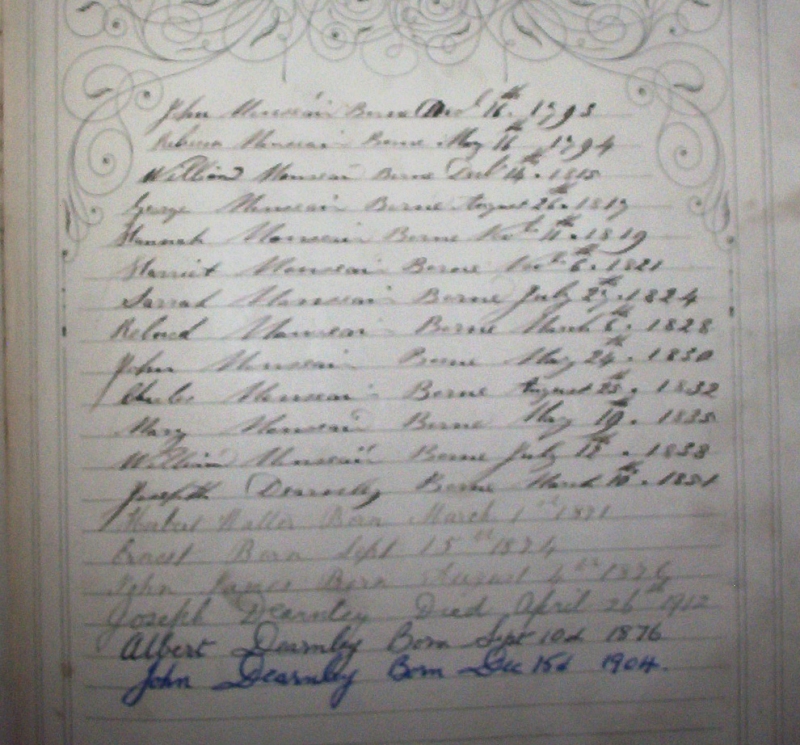 John Monseair Borne 16th 1793
Monseair Borne May 16 1794
William Monseair Borne Decbr 14th 1815
George Monseair Borne August 26th 1817
Hannah Monseair Borne Novbr 11th 1819
Harriet Monseair Borne Novbr 6th 1821
Sarrah Monseair Borne July 27th 1824
Monseair Borne March 6th 1828
John Monseair Borne May 24th 1830
Charles Monseair Borne August 25th 1832
Mary Monseair Borne May 19th 1835
William Monseair Borne July 18th 1838
Joseph Dearnley Borne March 10th 1851
Herbert Born March 1st 1871
Ernest Born Sept 15th 1874
John James Born August 4th 1876
Joseph Dearnley Died April 26th 1912
Albert Dearnley Born Sept 10d 1876
John Dearnley Born Dec 15d 1904.